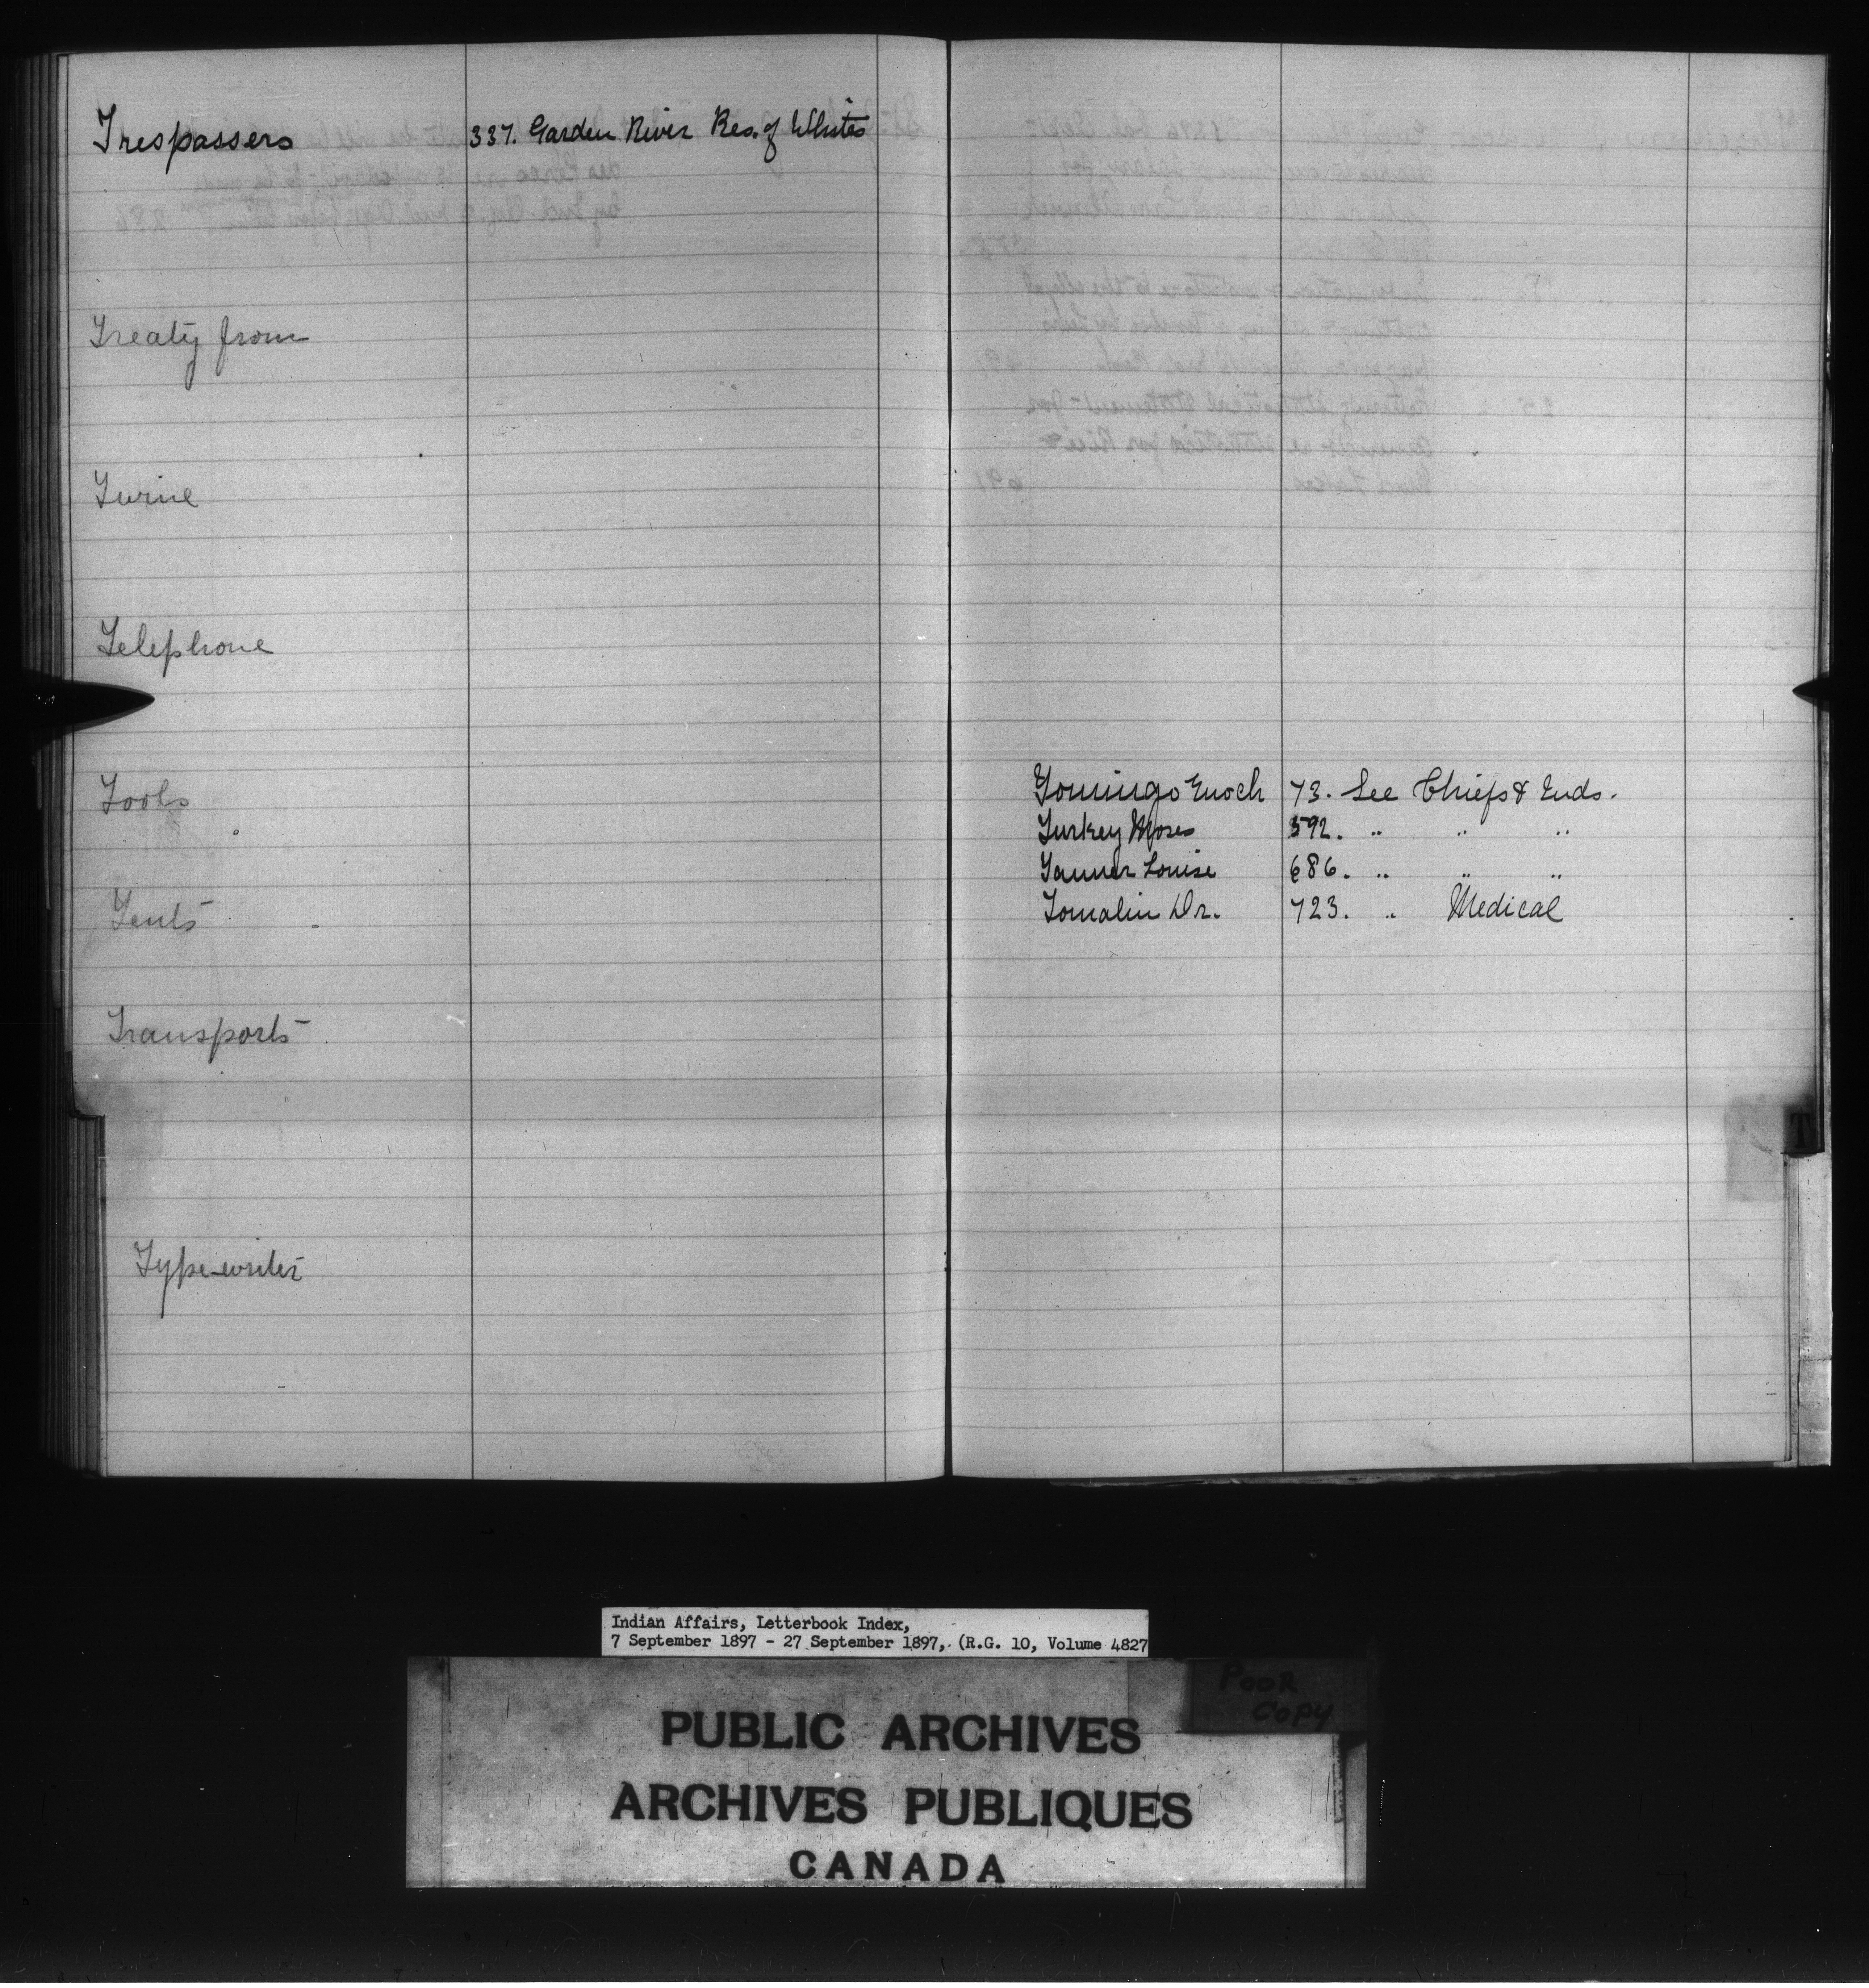 Trespassers 337. Garden River Res. of Whites
Treaty from
Twine
Telephone
Tools
Tents
Transports
Type-writer
Tomingo Enoch 73. See Chiefs & Inds.
Turkey Moses 592. " " "
Tanner Louise 686. " " "
Tomalin Dr. 723. " Medical
T
Indian Affairs, Letterbook Index,
7 September 1897 - 27 September 1897, (R.G. 10, Volume 4827
POOR
COPY
PUBLIC ARCHIVES
ARCHIVES PUBLIQUES
CANADA